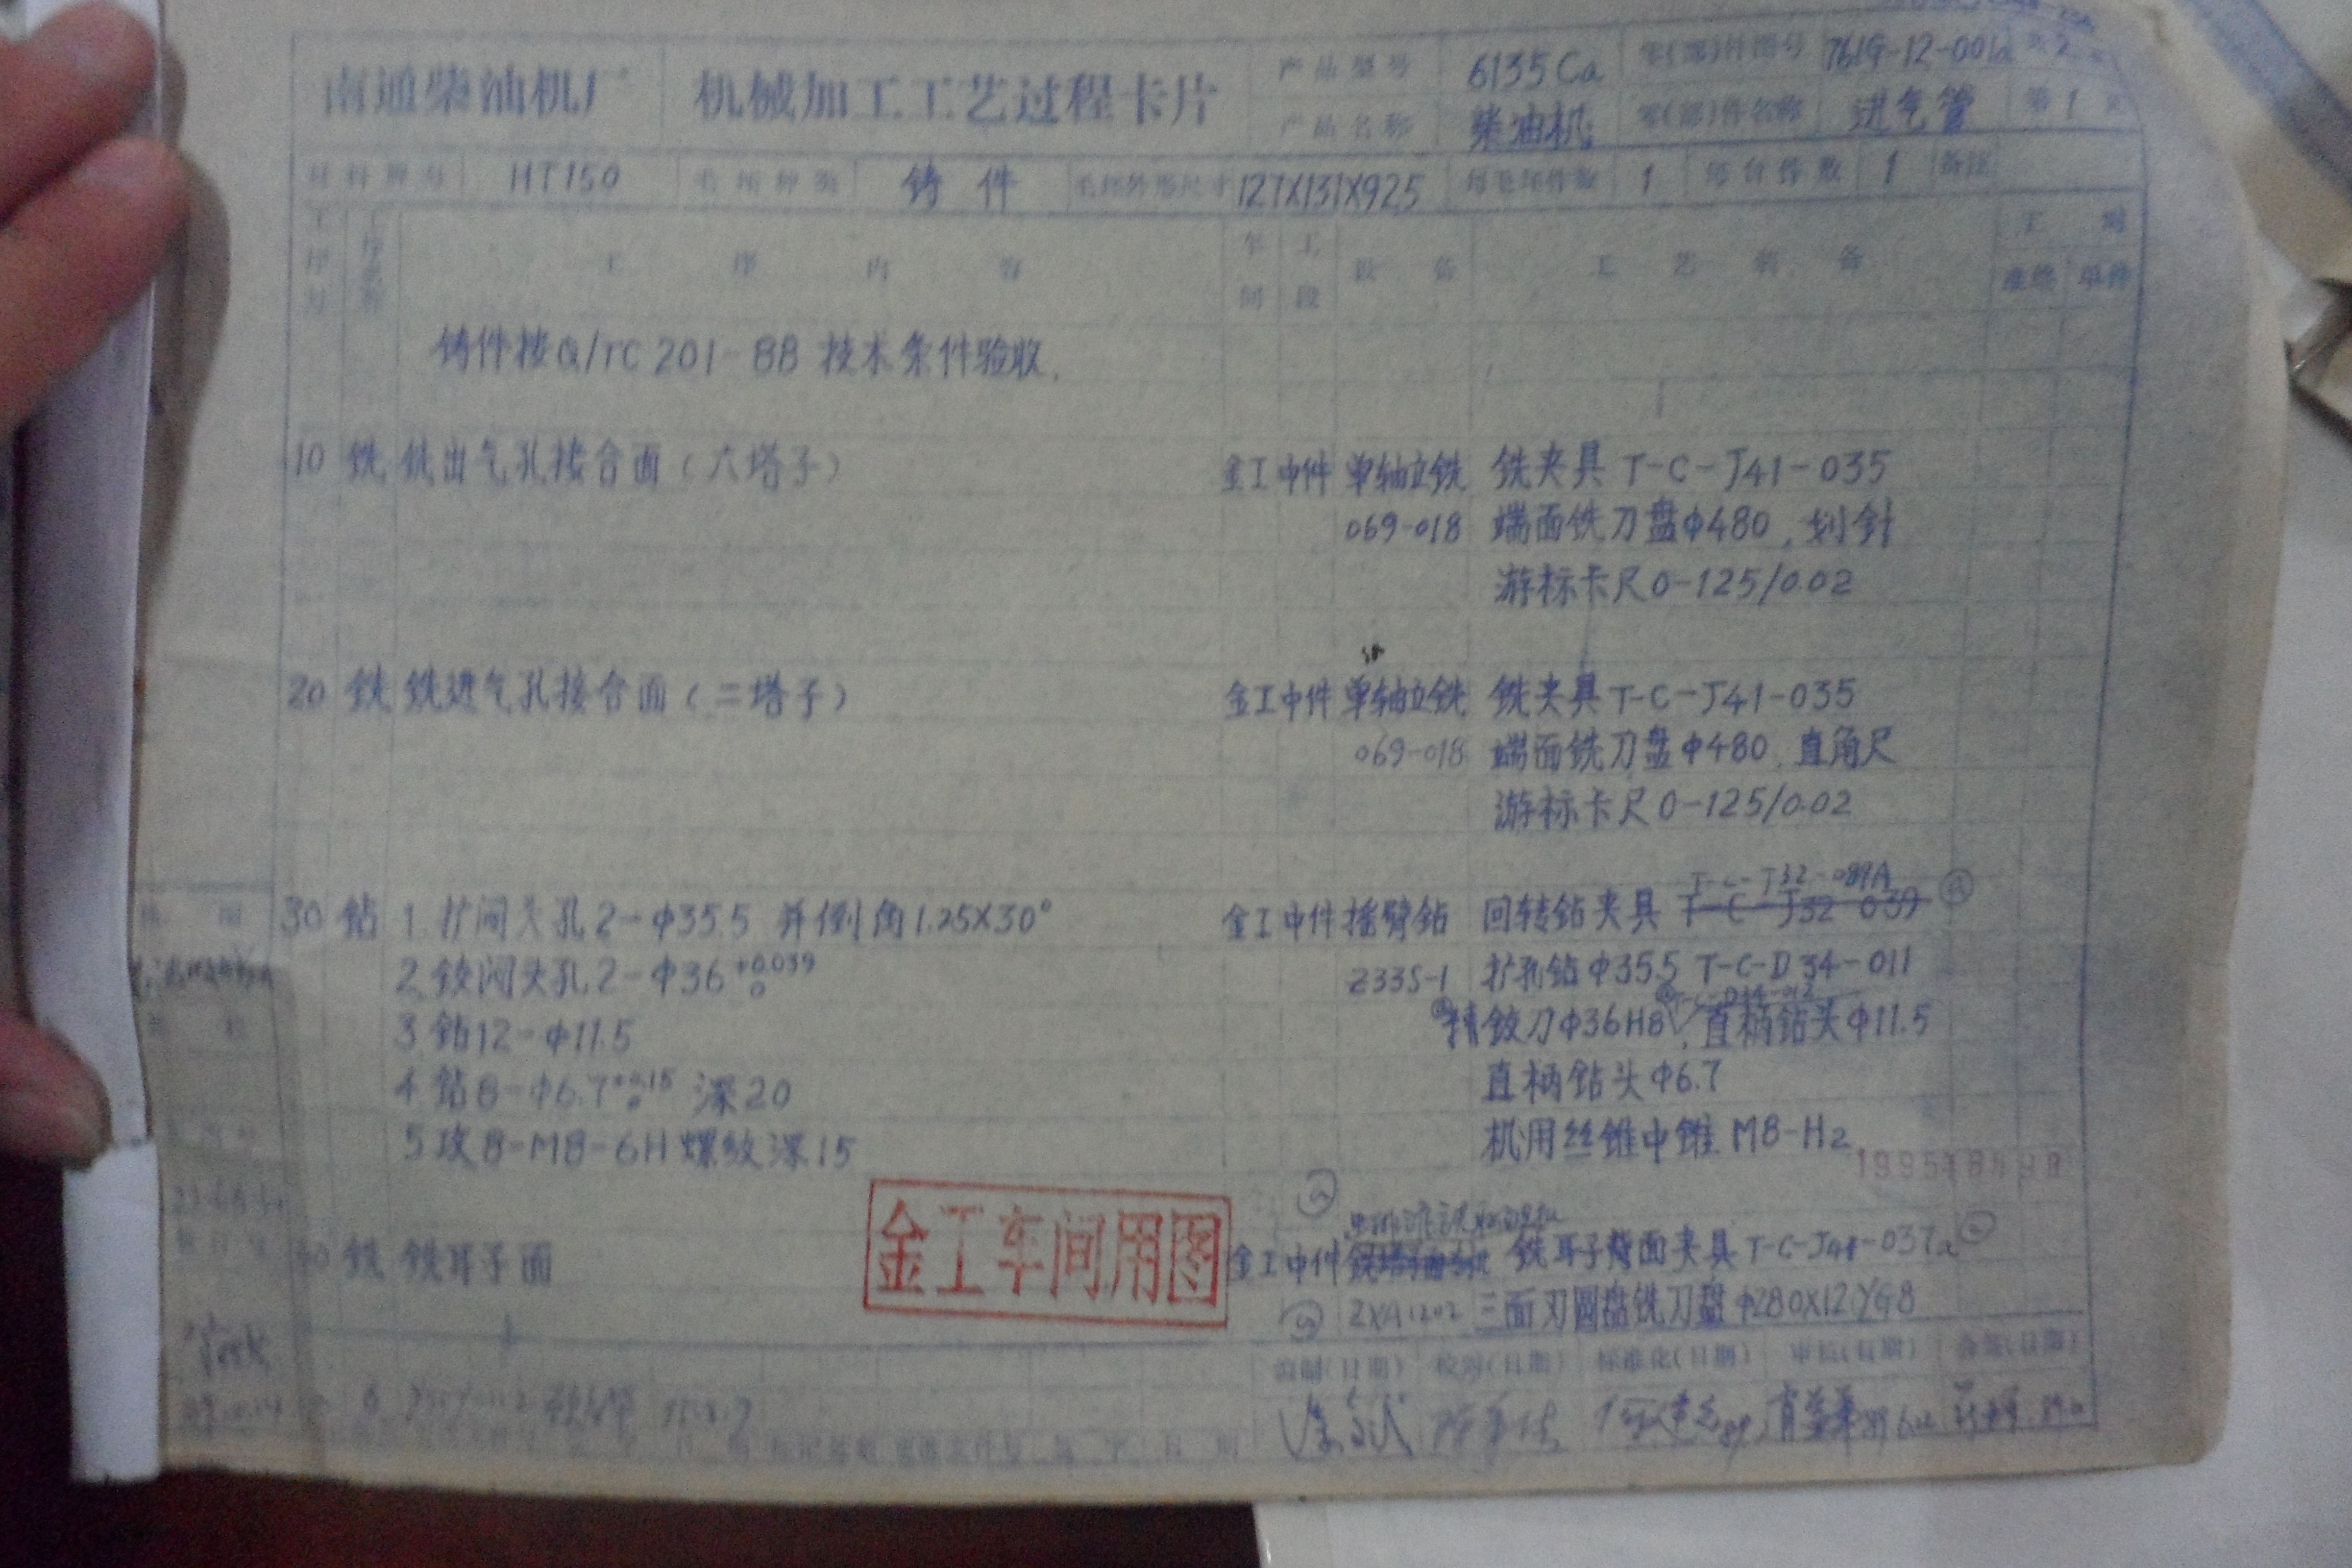 南通柴油机厂 机械加工工艺过程卡片 产品型号 6135Ca 零(部)件图号 761G-12-001a 共2页
产品名称 柴油机 零(部)件名称 进气管 第1页
材料牌号 HT150 毛坯种类 铸件 毛坯外形尺寸 127X131X925 每毛坯件数 1 每台件数 1 备注
工序号 工序名称 工序内容 车间 工段 设备 工艺装备 工时
准终 单件
铸件按Q/TC 201-88 技术条件验收.
10 铣 铣出气孔接合面(六塔子) 金工 中件 单轴立铣 铣夹具 T-C-J41-035
069-018 端面铣刀盘Φ480,划针
游标卡尺0-125/0.02
20 铣 铣进气孔接合面(二塔子) 金工 中件 单轴立铣 铣夹具 T-C-J41-035
069-018 端面铣刀盘Φ480,直角尺
游标卡尺0-125/0.02
T-C-J32-089A
30 钻 1.扩闷头孔2-Φ35.5 并倒角1.25X30° 金工 中件 摇臂钻 回转钻夹具 T-C-J32-039
2.铰闷头孔2-Φ36 +0.039 0 Z335-1 扩孔钻Φ35.5 T-C-D34-011
3 钻12-Φ11.5 精铰刀Φ36H8,直柄钻头Φ11.5
4 钻8-Φ6.7 +0.15 0 深20 直柄钻头Φ6.7
5 攻8-M8-6H螺纹深15 机用丝锥中锥 M8-H2
金工车间用图
40 铣 铣耳子面 金工 中件 铣耳子背面夹具 T-C-J41-037a
ZXA1202 三面刃圆盘铣刀盘Φ280X12 YG8
编制(日期) 校对(日期) 标准化(日期) 审核(日期) 会签(日期)